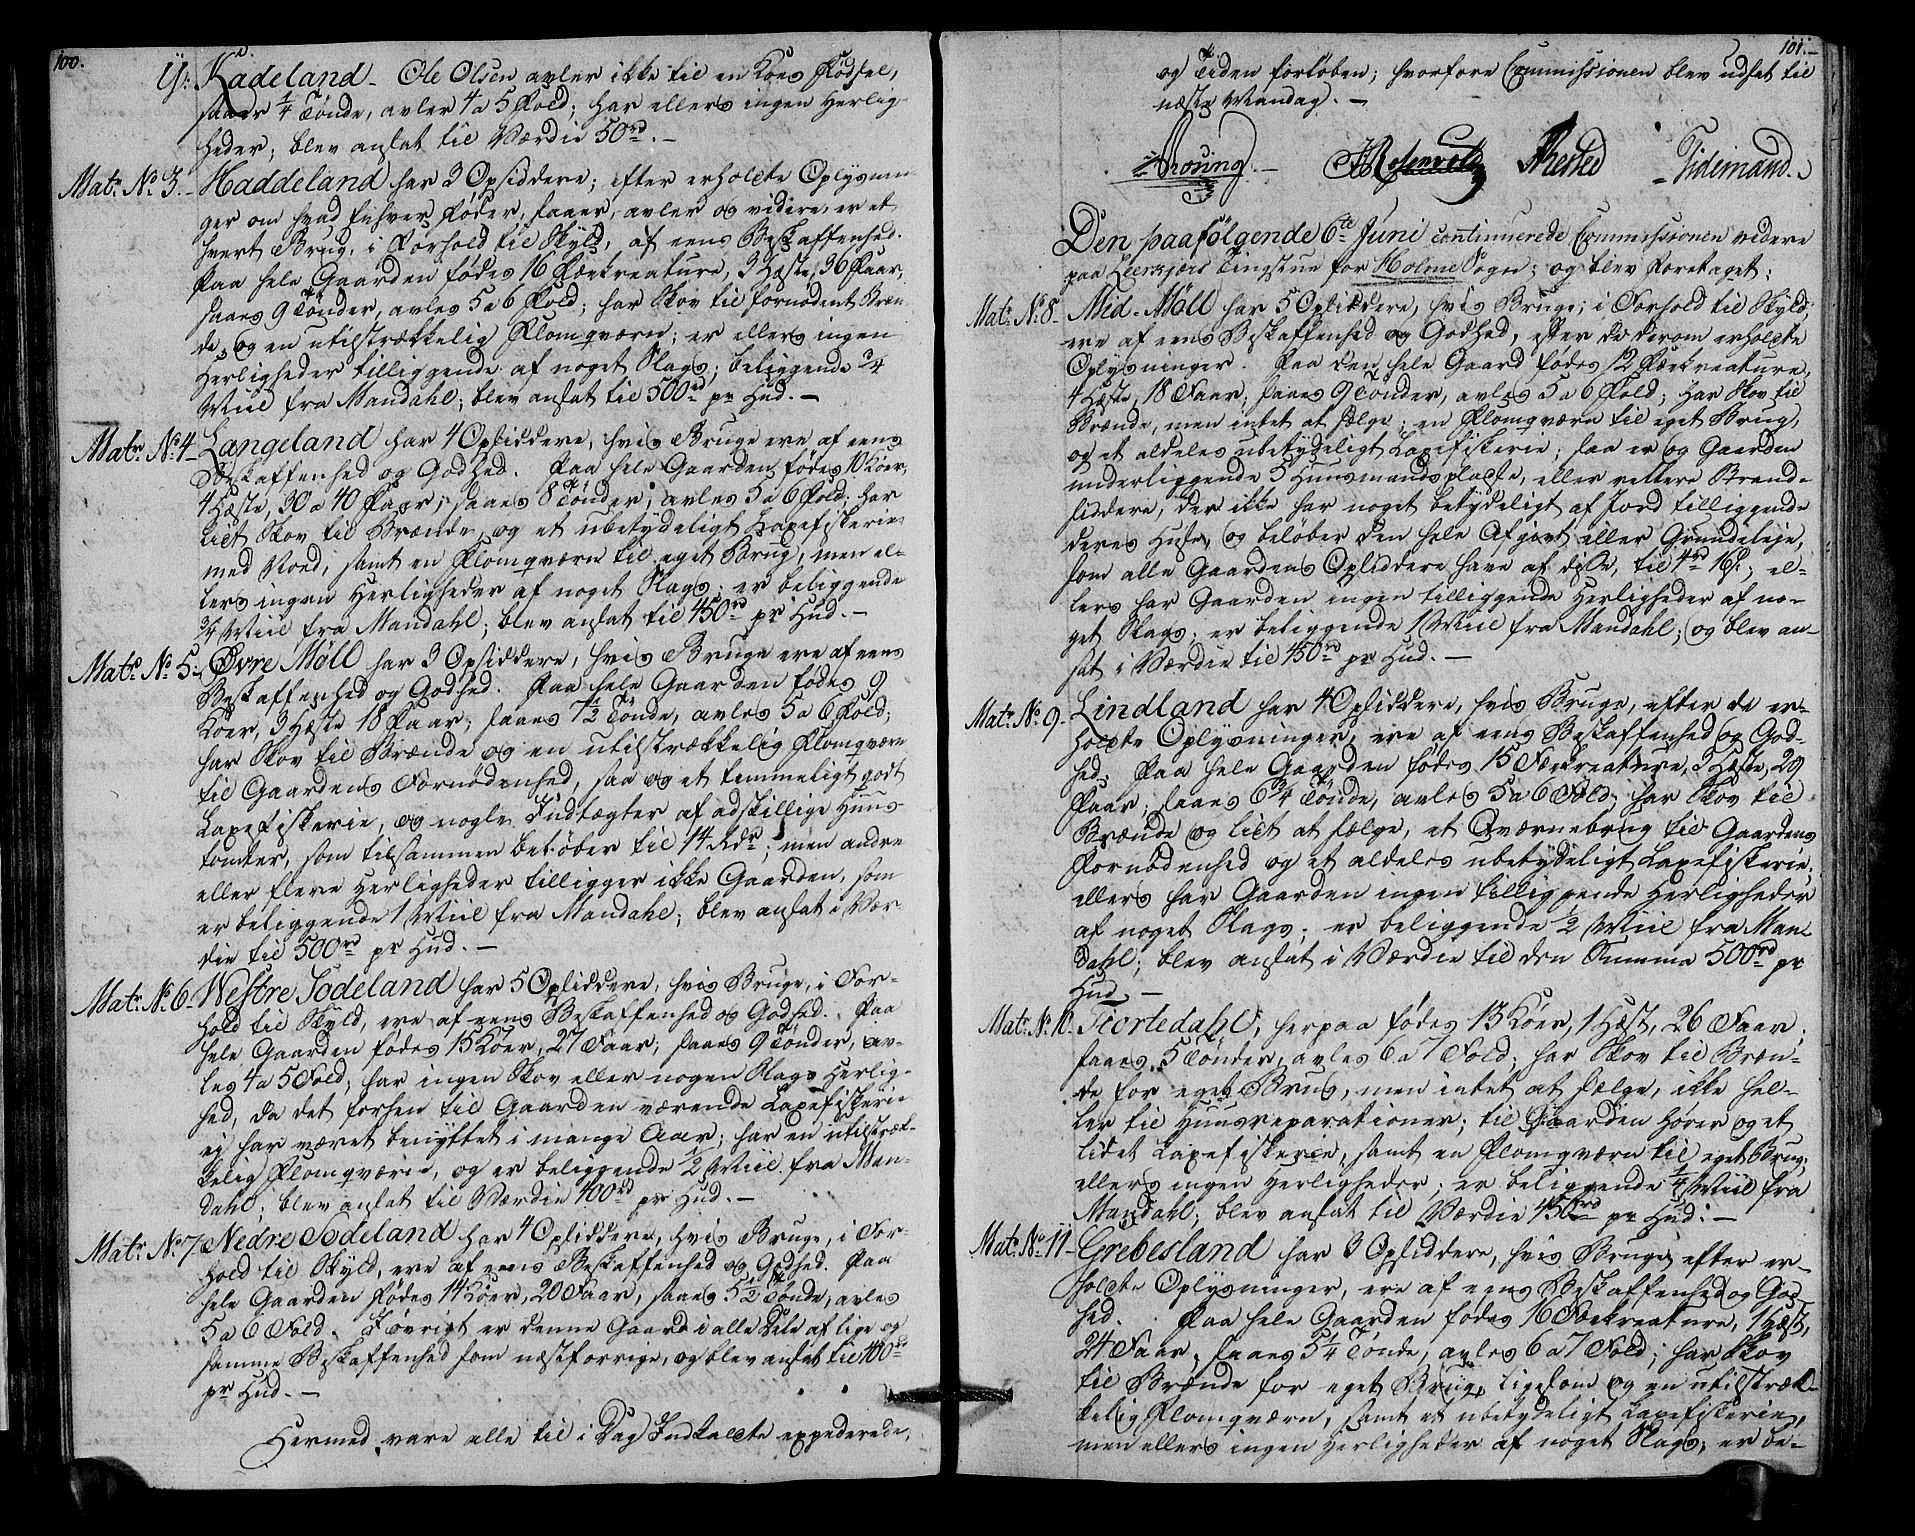 100.
Y: Kadeland – Ole Olsen avler ikke til en Koes Fødsel,
saaer 1/4 Tønde, avler 4 a 5 Fold; har ellers ingen Herlig-
heder; blev ansat til Værdie 50rd. –
Matr. No 3. – Haddeland har 2 Opsiddere; efter erholdte Oplysnin-
ger om hvad Enhver føder, saaer, avler og videre, er et-
hvert Brug, i Forhold til Skyld, af eens Beskaffenhed.
Paa hele Gaarden fødes 16 Fækreature, 3 Hæste, 36 Faar,
saaes 9 Tønder, avles 5 a 6 Fold; har Skov til fornødent Bræn-
de, og en utilstrækkelig Flomqværn; er ellers ingen
Herligheder tilliggende af noget Slags; beliggende 3/4
Miil fra Mandahl; blev ansat til 500rd pr Hud. –
Matr. No 4 – Langeland har 4 Opsiddere, hvis Bruge ere af eens
Beskaffenhed og Godhed. Paa hele Gaarden fødes 10 Køer,
4 Hæste, 30 a 40 Faar; saaes 8 Tønder; avles 5 a 6 Fold; har
lidt Skov til Brænde, og et ubetydeligt Laxefiskerie
med Noed, samt en Flomqværn til eget Brug, men el-
lers ingen Herligheder af noget Slags; er beliggende
3/4 Miil fra Mandahl; blev ansat til 450rd pr Hud. –
Matr. No 5. Øvre Møll har 3 Opsiddere, hvis Bruge ere af eens
Beskaffenhed og Godhed. Paa hele Gaarden fødes 9
Køer, 3 Hæste 18 Faar; saaes 7 1/2 Tønde, avles 5 a 6 Fold;
har Skov til Brænde og en utilstrækkelig Flomqværn
til Gaardens Fornødenhed, saa og et temmeligt godt
Laxefiskerie, og nogle Indtægter af adskillige Huus-
tomter, som tilsammen beløber til 14 Rdr; men andre
eller flere Herligheder tilligger ikke Gaarden, som
er beliggende 1 Miil fra Mandahl; blev ansat i Vær-
die til 500rd pr Hud. –
Matr. No 6 – Westre Sodeland har 5 Opsiddere, hvis Bruge, i For-
hold til Skyld, ere af eens Beskaffenhed og Godhed. Paa
hele Gaarden fødes 15 Køer, 27 Faar; saaes 9 Tønder, av-
les 4 a 5 Fold; har ingen Skov eller nogen Slags Herlig-
hed, da det forhen til Gaarden værende Laxefiskerie
ej har været benyttet i mange Aar; har en utilstræk-
kelig Flomqværn, og er beliggende 1/2 Miil fra Man-
dahl; blev ansat til Værdie 400rd pr Hud. –
Matr. No 7 Nedre Sodeland har 4 Opsiddere, hvis Bruge, i For-
hold til Skyld, ere af eens Beskaffenhed og Godhed. Paa
hele Gaarden fødes 14 Køer, 20 Faar, saaes 5 1/2 Tønde, avles
5 a 6 Fold. I øvrigt er denne Gaard i alle Dele af lige og
samme Beskaffenhed som næstforrige, og blev ansat til 400rd
pr Hud. –
Hermed vare alle til i Dag Indkaldte expederede,
101. –
og Tiden forløben; hvorfore Commissionen blev udsat til
næste Mandag. –
Rosenvold Tidemand.
Den paafølgende 6te Juni continuerede Commissionen videre
paa Tingstue for Holme Sogn; og blev foretaget:
Matr. No 8 – Mid-Møll har 5 Opsiddere, hvis Bruge, i Forhold til Skyld,
ere af eens Beskaffenhed og Godhed, efter de derom erholdte
Oplysninger. Paa den hele Gaard fødes 12 Fækreature,
4 Hæste, 18 Faar; saaes 9 Tønder, avles 5 a 6 Fold; har Skov til
Brænde, men intet at sælge; en Flomqværn til eget Brug,
og et aldeles ubetydeligt Laxefiskerie; saa er og Gaarden
underliggende 5 Huusmandspladse, eller rettere Strand-
siddere, der ikke har noget betydeligt af Jord tilliggende
deres Huse, og beløber den hele Afgivt eller Grundeleje,
som alle Gaardens Opsiddere have af disse, til 4rd 16s; el-
lers har Gaarden ingen tilliggende Herligheder af no-
get Slags; er beliggende 1 Miil fra Mandahl; og blev an-
sat i Værdie til 450rd pr Hud. –
Matr. No 9. Lindland har 4 Opsiddere, hvis Bruge, efter de er-
holdte Oplysninger, ere af eens Beskaffenhed og God-
hed. Paa hele Gaarden fødes 15 Fækreature, 3 Hæste, 29
Faar; saaes 6 3/4 Tønde, avles 5 a 6 Fold; har Skov til
Brænde og lidt at sælge, et Qværnebrug til Gaardens
Fornødenhed og et aldeles ubetydeligt Laxefiskerie;
ellers har Gaarden ingen tilliggende Herligheder
af noget Slags; er beliggende 1/2 Miil fra Man-
dahl; blev ansat i Værdie til den Summa 500rd pr
Hud. –
Matr. No 10. Fiortedahl, herpaa fødes 13 Køer, 1 Hæst, 26 Faar.
saaes 5 Tønder, avles 6 a 7 Fold; har Skov til Bræn-
de for eget Brug, men intet at sælge, ikke hel-
ler til Huusreparationer; til Gaarden hører og et
lidet Laxefiskerie, samt en Flomqværn til eget Brug;
ellers ingen Herligheder; er beliggende 1/4 Miil fra
Mandahl; blev ansat til Værdie 450rd pr Hud. –
Matr. No 11 – Grebesland har 3 Opsiddere, hvis Bruge, efter er-
holdte Oplysninger, ere af eens Beskaffenhed og God-
hed. Paa hele Gaarden fødes 16 Fækreature, 1 Hæst,
24 Faar; saaes 5 1/4 Tønde, avles 6 a 7 Fold; har Skov
til Brænde for eget Brug, ligesom og en utilstræk-
kelig Flomqværn, samt et ubetydeligt Laxefiskerie,
men ellers ingen Herligheder af noget Slags; er be-